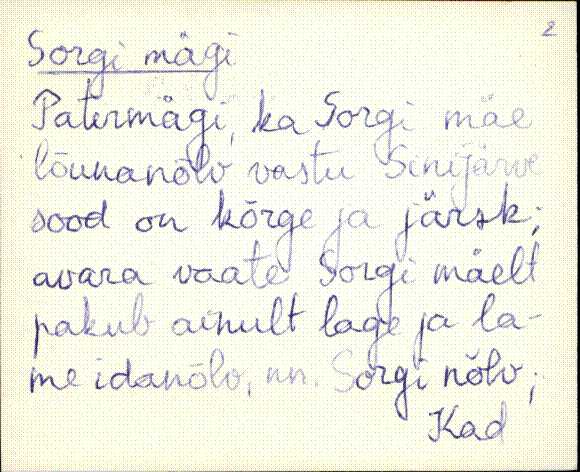 2
Sorgi mägi
Patermägi, ka Sorgi mäe
lõunanõlv vastu Sinijärve
sood on kõrge ja järsk;
avara vaate Sorgi mäelt
pakub ainult lage ja la-
me idanõlv, nn. Sorgi nõlv;
Kad